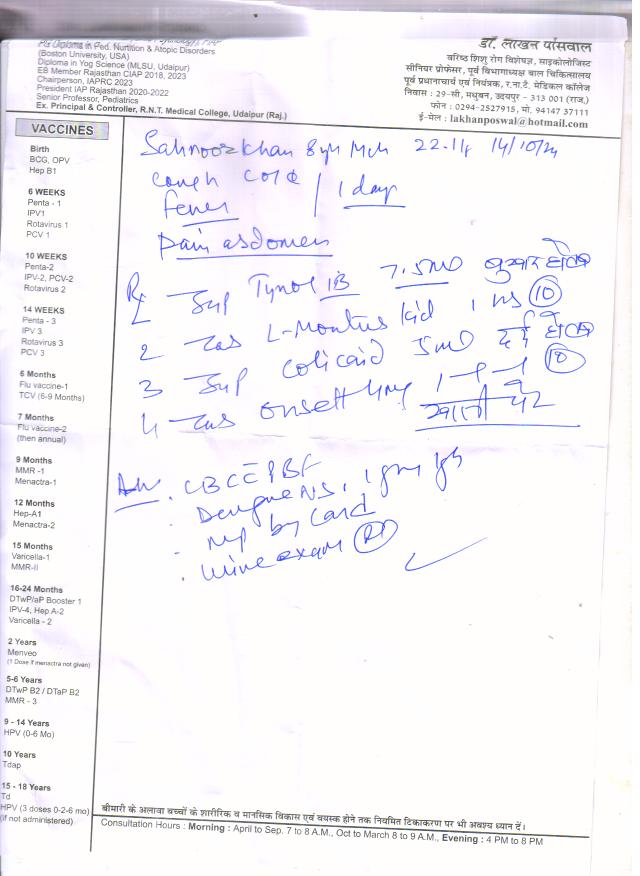 PG Diploma in Ped. Nurtition & Atopic Disorders
(Boston University, USA)
Diploma in Yog Science (MLSU, Udaipur)
EB Member Rajasthan CIAP 2018, 2023
Chairperson, IAPRC 2023
President IAP Rajasthan 2020-2022
Senior Professor, Pediatrics
Ex. Principal & Controller, R.N.T. Medical College, Udaipur (Raj.)
डॉ. लाखन पोसवाल
वरिष्ठ शिशु रोग विशेषज्ञ, साइकोलोजिस्ट
सीनियर प्रोफेसर, पूर्व विभागाध्यक्ष बाल चिकित्सालय
पूर्व प्रधानाचार्य एवं नियंत्रक, र.ना.टै. मेडिकल कॉलेज
निवास : 29-सी, मधुबन, उदयपुर - 313 001 (राज.)
फोन : 0294-2527915, मो. 94147 37111
ई-मेल : lakhanposwal@hotmail.com
VACCINES
Birth
BCG, OPV
Hep B1
6 WEEKS
Penta - 1
IPV1
Rotavirus 1
PCV 1
10 WEEKS
Penta-2
IPV-2, PCV-2
Rotavirus 2
14 WEEKS
Penta - 3
IPV 3
Rotavirus 3
PCV 3
6 Months
Flu vaccine-1
TCV (6-9 Months)
7 Months
Flu vaccine-2
(then annual)
9 Months
MMR -1
Menactra-1
12 Months
Hep-A1
Menactra-2
15 Months
Varicella-1
MMR-II
16-24 Months
DTwP/aP Booster 1
IPV-4, Hep A-2
Varicella - 2
2 Years
Menveo
(1 Dose if menactra not given)
5-6 Years
DTwP B2 / DTaP B2
MMR - 3
9 - 14 Years
HPV (0-6 Mo)
10 Years
Tdap
15 - 18 Years
Td
HPV (3 doses 0-2-6 mo)
(if not administered)
Sahnoor khan 8 yr Mch 14/10/24
cough cold
fever / 1 day
Pain abdomen
Rx
1 Syp Tynol IB 7.5ml बुखार
2 L-Montus kid 10
3 Syp colicaid 5ml दर्द 10
4 onsett 4mg 1-1-1
Adv. CBC PBF
Dengue NS1 IgM IgG
MP by Card
urine exam
बीमारी के अलावा बच्चों के शारीरिक व मानसिक विकास एवं वयस्क होने तक नियमित टिकाकरण पर भी अवश्य ध्यान दें।
Consultation Hours : Morning : April to Sep. 7 to 8 A.M., Oct to March 8 to 9 A.M., Evening : 4 PM to 8 PM